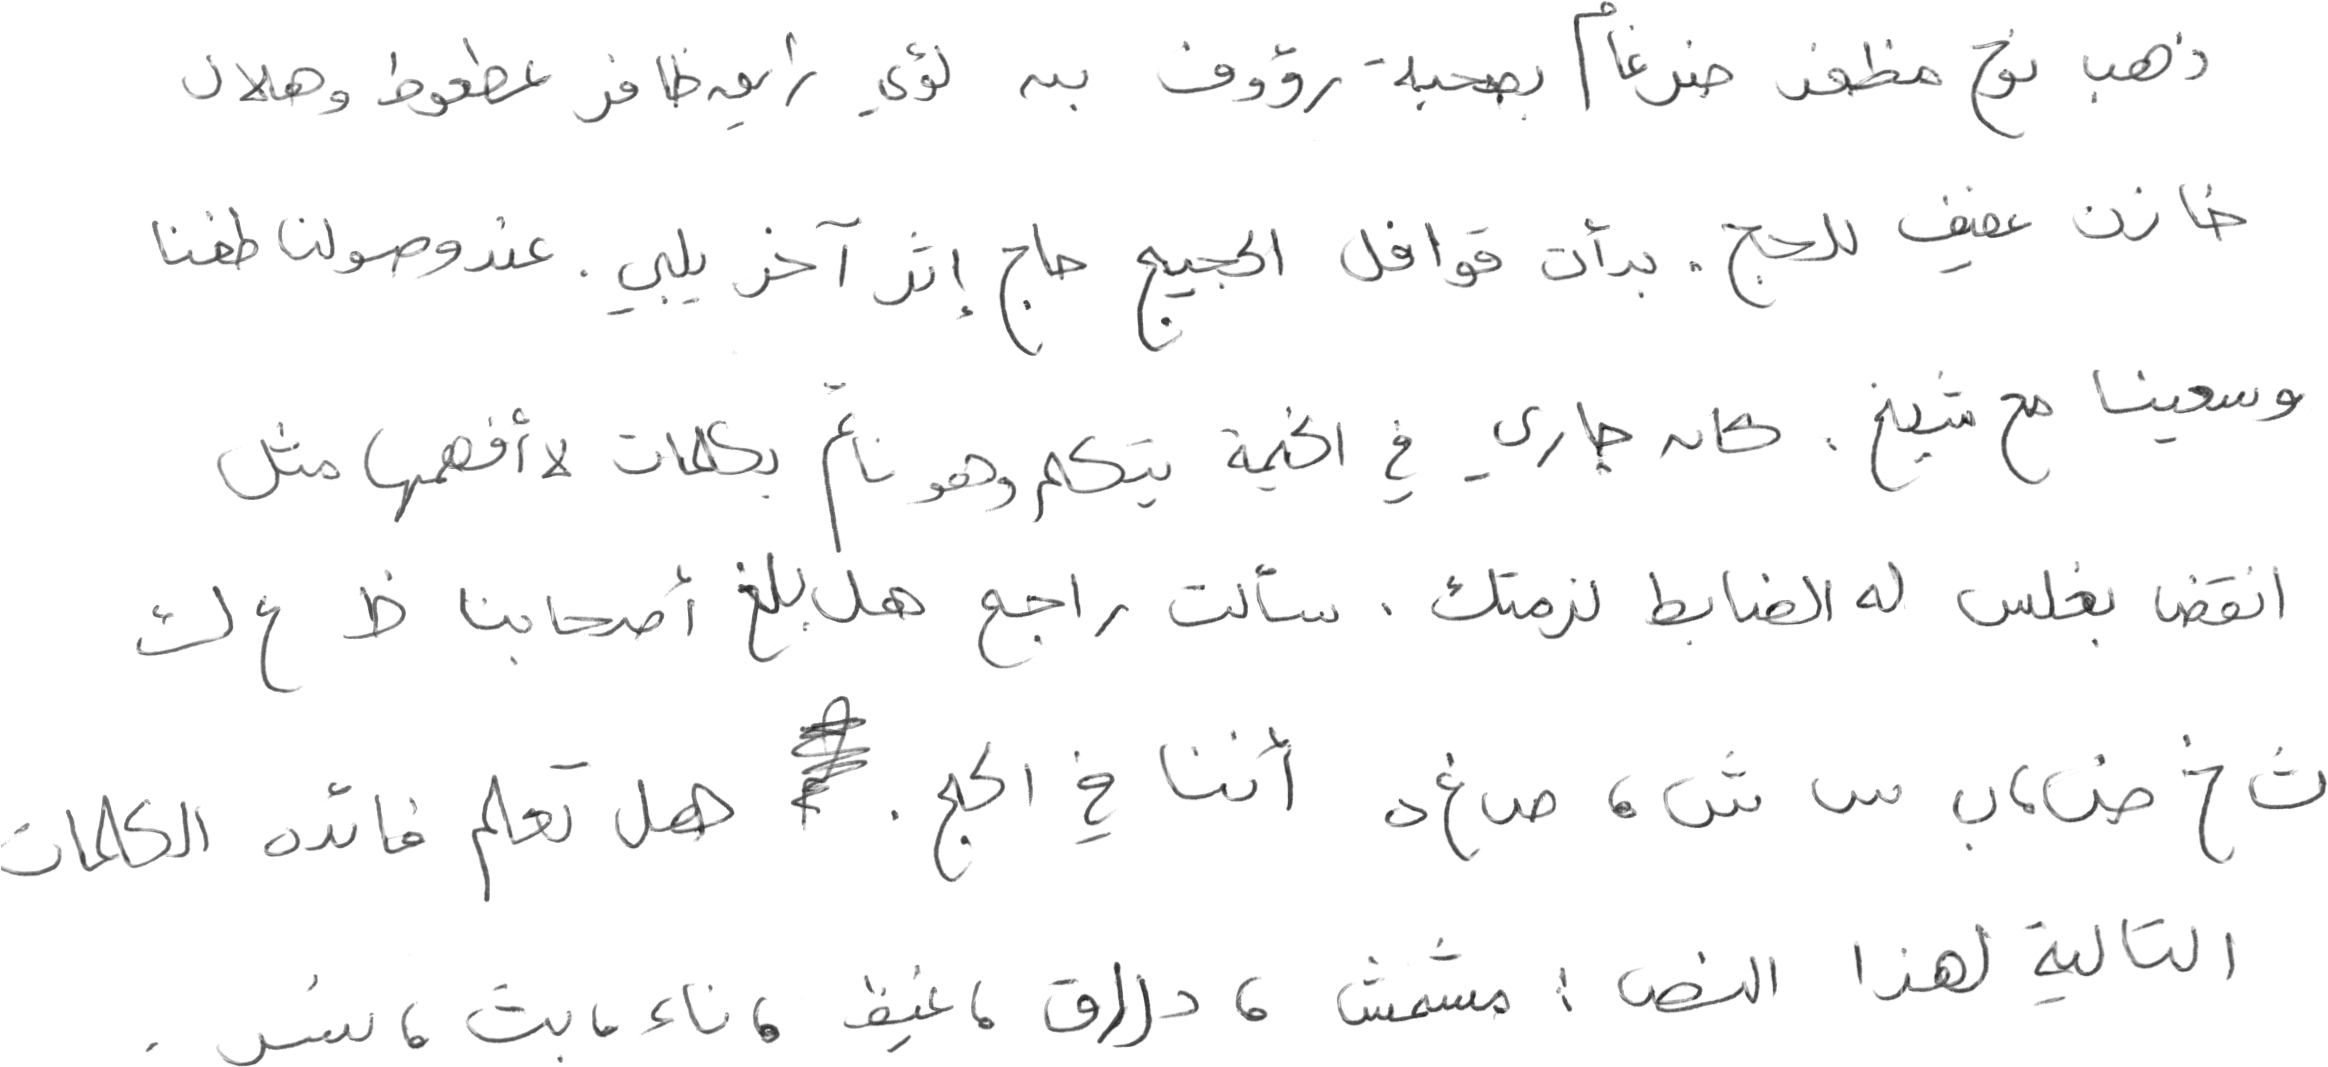 ذهب نوح مظفر ضرغام بصحبة رؤوف بن لؤي رابع ظافر عطعوط وهلال
خازن عفيف للحج. بدأت قوافل الحجيج حاج إثر آخر يلبي. عند وصولنا طفنا
وسعينا مع شيخ. كان جاري في الخيمة يتكلم وهو نائم بكلمات لا أفهمها مثل
انقضا بغلس له الضابط لزمتك. سألت راجع هل بلغ أصحابنا ظ ع ك
ث خ ض، ب س ش، ص غ ه أننا في الحج. هل تعلم فائده الكلمات
التالية لهذا النص: مشمش، دراق، غيظ، ناء، بث، نسر.